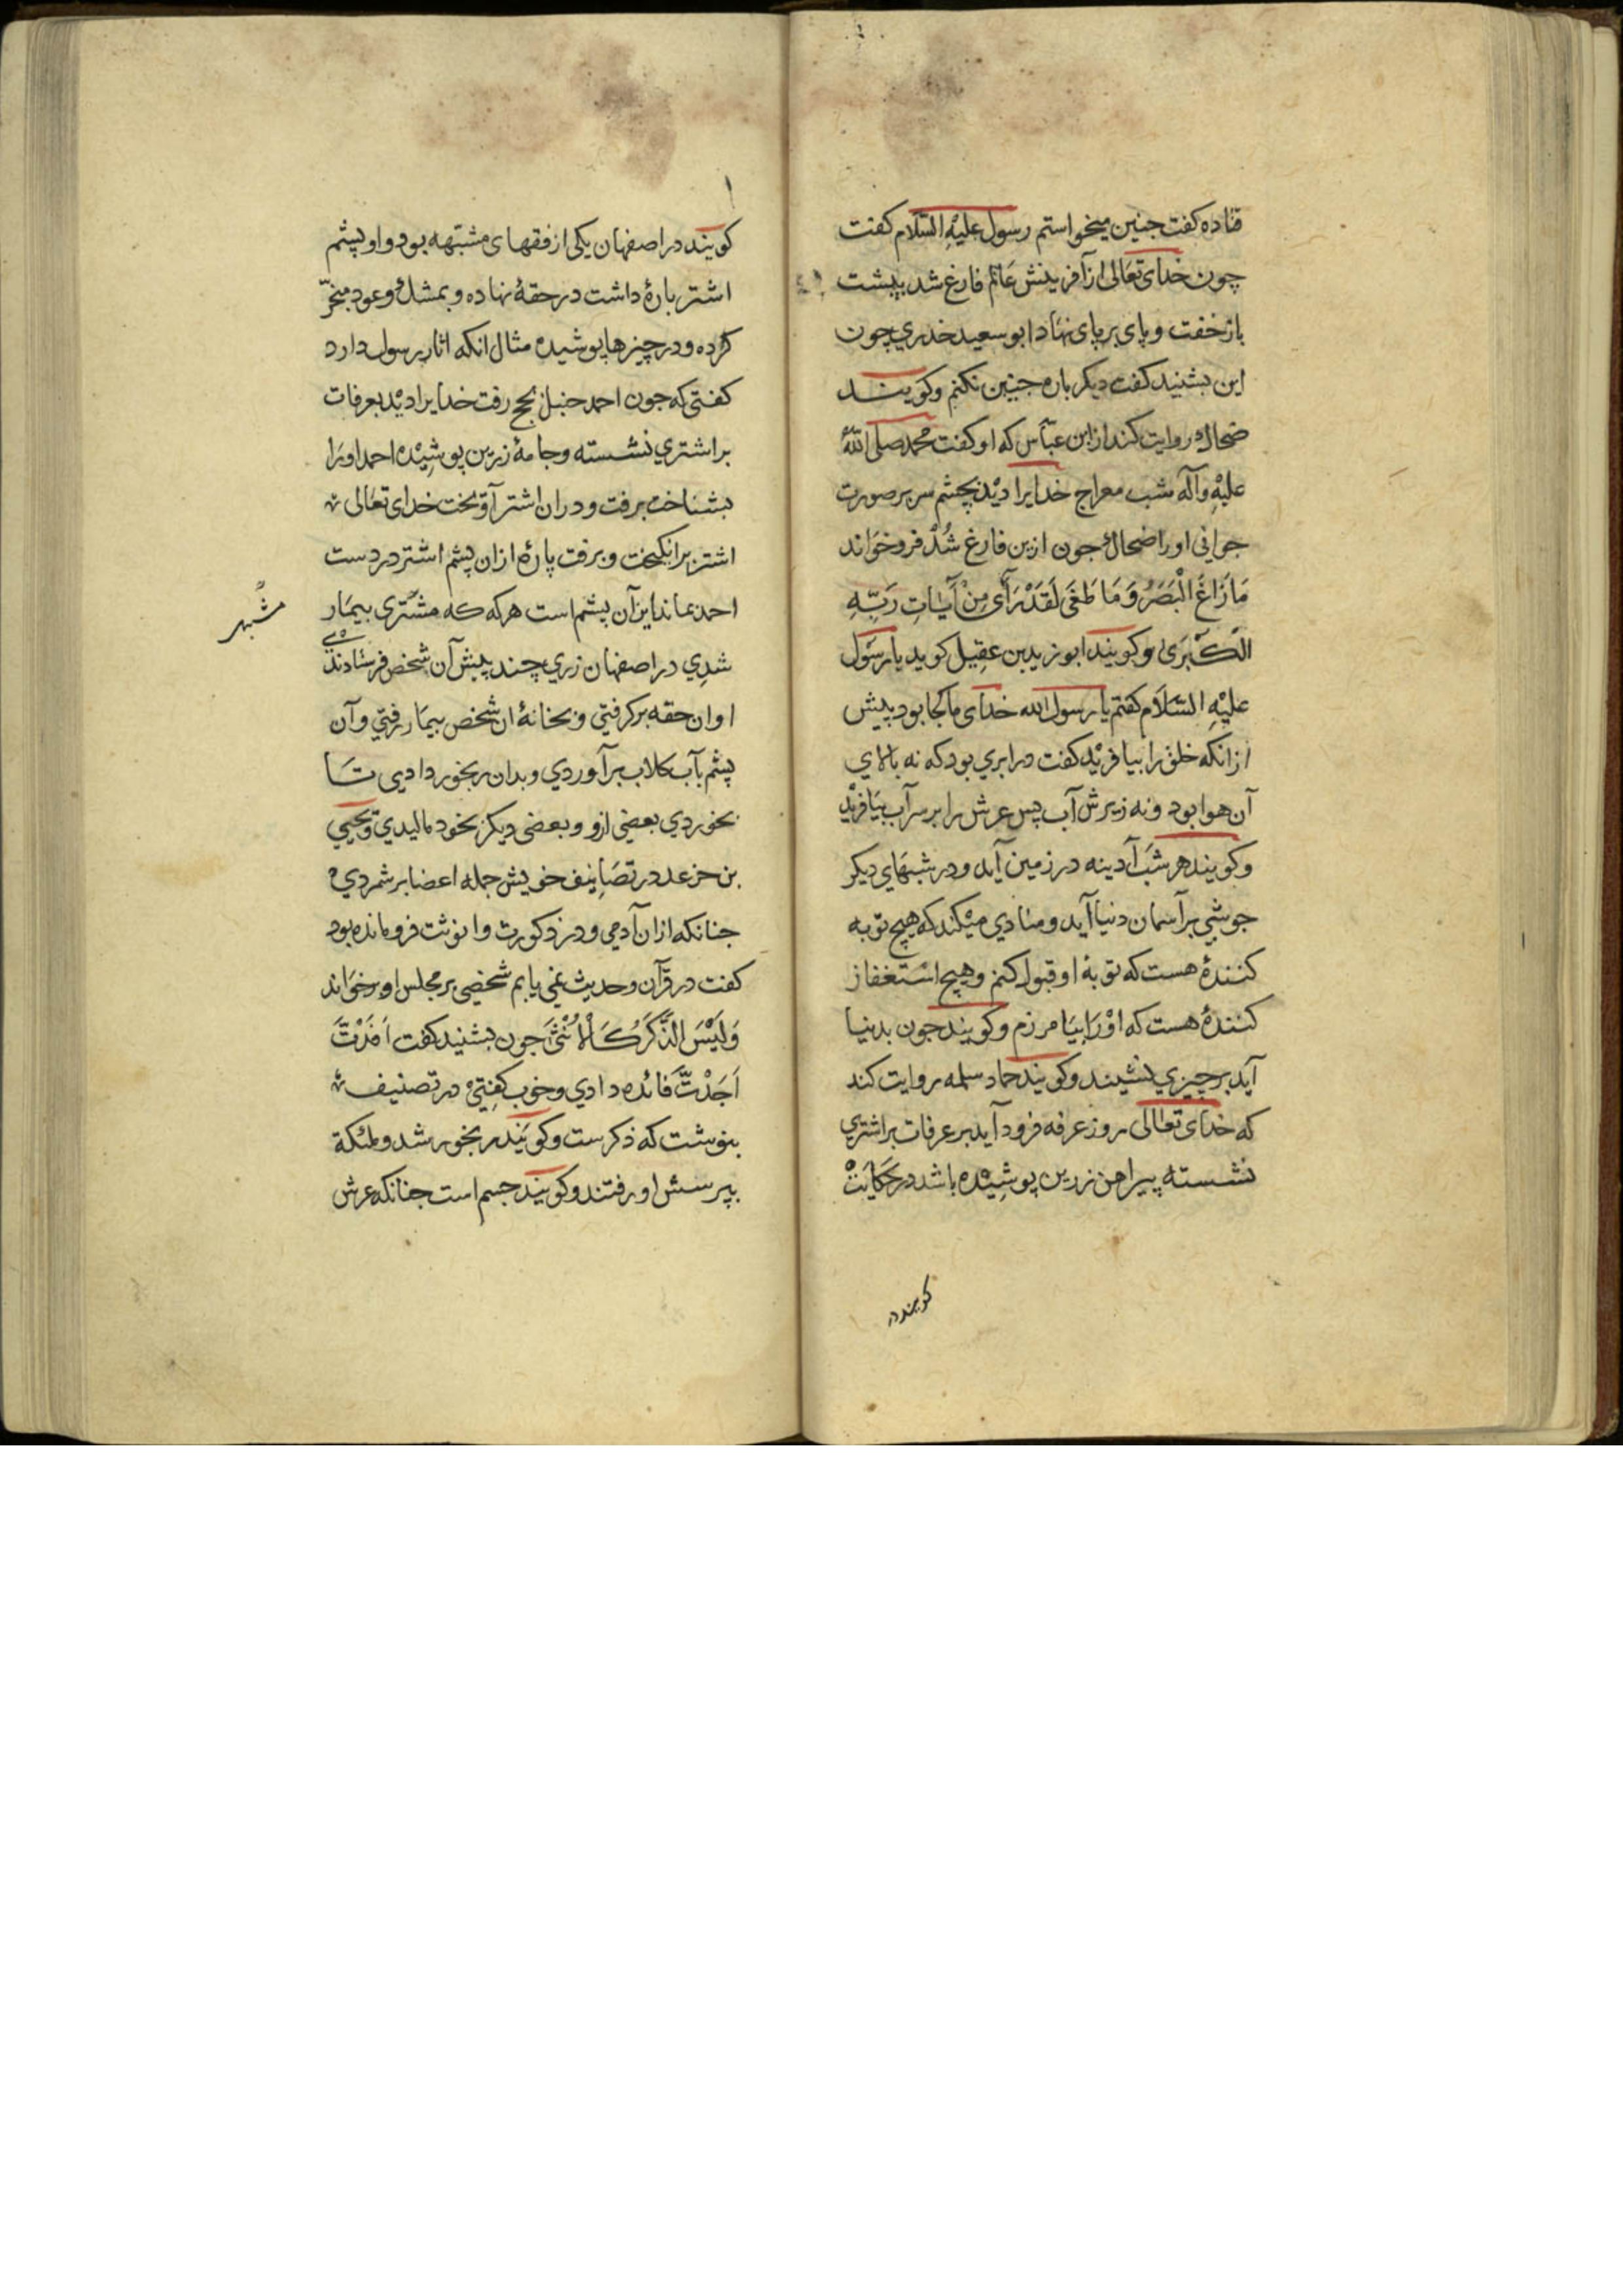 قتاده کفت جنین میخواستم رسول علیْهِ السَّلام کفت
چون خدای تعَالی از آفرینش عَالم فارغ شد بپشت
باز خفت و پای بر پای نهَاد ابو سعید خدري چون
این بشنید کفت دیکر باره جنین نکنم و کویند
ضحاك روایت کند از ابن عبّاس که او کفت محمد صلی اللهُ
علیْهِ وآله شب معراج خدایرا دیْد بچشم سر بر صورت
جوانی اورا ضحاك جون ازین فارغ شُدْ فرو خوَاند
مَا زَاغَ الْبَصَرُ وَمَا طَغَی لَقَدْ رَآَی مِنْ آیَاتِ رَبِّهِ
الْکُبْرَی و کویند ابو زید بن عقِیل کوید یا رسَوُل
علیْهِ السَّلَام کفتم یا رسول الله خدای ما کجا بود پیش
ازانکه خلق را بیافریْد کفت در ابري بود که نه بالاي
آن هوا بود و نه زیرش آب پس عرش را بر سر آب بیَافریْد
و کویند هر شَبَ آدینه در زمین آید و در شبهَاي دیکر
جو شبي بر آسمان دنیا آید و منادي میْکند که هیچ توبه
کننده هست که توبۀ او قبول کنم و هیچ استغفار
کنندۀ هست که اوْرَا بیَامرزم و کویند جون بدنیا
آید بر چیزي نشیند و کویند حماد سلمه روایت کند
که خدای تعالی روز عرفه فرود آید بر عرفات بر اشتري
نشسته پیراهن زرین پوشِیْده باشد در حکایَتْ
کویند در
کویَند در اصفهان یکی از فقهای مشتبهه بود و او پشم
اشتر پارۀ داشت در حقۀ نهاده و بمشك و عود مبخّر
کرده و در چیزها پوشیده مثال انکه اثار رسول دارد
کفتی که جون احمد حنبل بحج رفت خدایرا دیْد بعرفات
بر اشتري نشسته و جامۀ زرین پوشِیْده احمد اورَا
بشناخت برفت و در ان اشتر آوَیخت خدای تعَالی
اشتر برانکیخت و برفت پارۀ ازان پشم اشتر در دست
احمد بماند این آن پشم است هر که که مشتری بیمَار
مشبهی
شدِي در اصفهان زري چند پیش آن شخص فرستادندْي
او ان حقه برکرفتي و بخانۀ ان شخص بیمَار رفتي و آن
پشم بآب کلاب برآوردي و بدان رنجور دادیي تَا
بخوردي بعضی ازو و بعضی دیکر بخود مالیدي و یحیي
بن خزعد در تصَانِیف خویش جمله اعضا بر شمردي
جنانکه ازان آدمي و در ذکورت و انوثت فرومانده بود
کفت در قرآن و حدیث نمی یابم شخصی بر مجلس او برخوَاند
وَلَیْسَ الذَّکَرُ کَالْاُنْثَیَ جون بشنید کفت اَفَدْتَّ
اَجَدْتَّ فائده دادي و خوب کفتِيْ در تصنیف
بنوشت که ذکرست و کویَند رنجور شد و ملئکة
بپرسش او رفتند و کویند جسم است جنانکه عرش